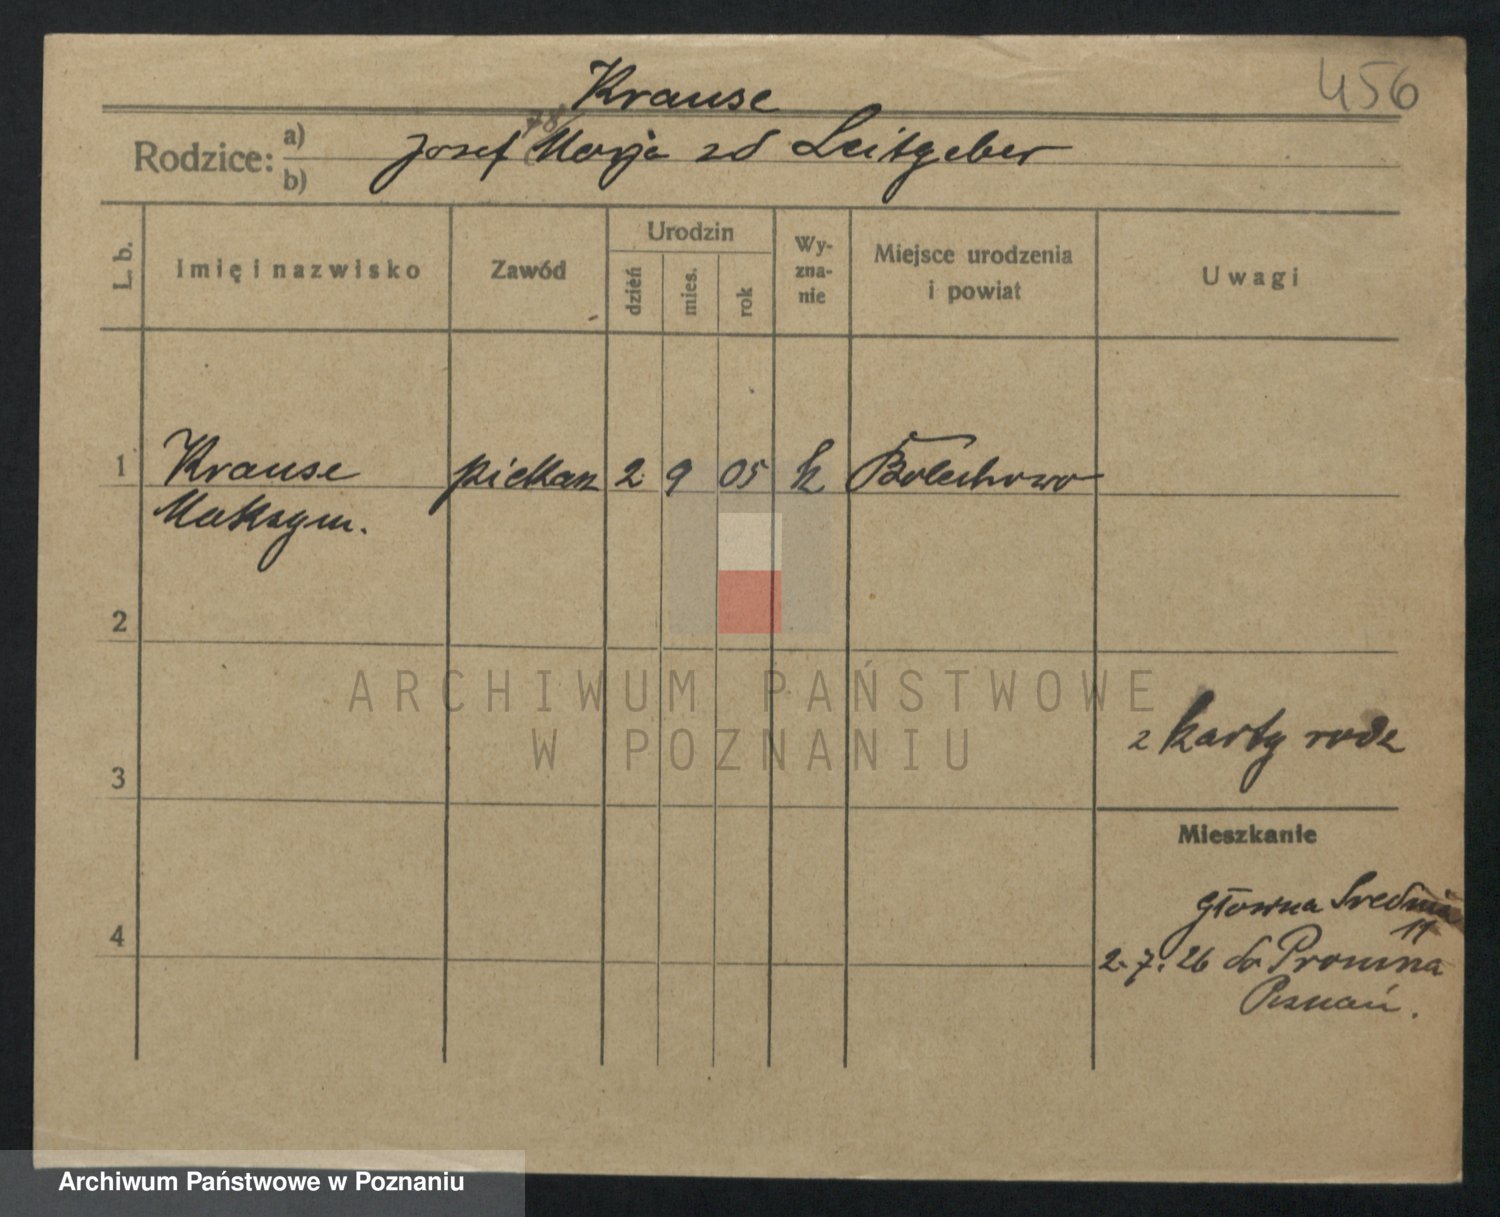 456
Krause
78
Rodzice: a) b) Josef Marja zd Leitgeber
L. b.
Imię i nazwisko
Zawód
Urodzin
dzień
mies.
rok
Wy-
zna-
nie
Miejsce urodzenia
i powiat
Uwagi
1 Krause piekarz 2. 9 05 k Bolechowo
Maksym.
2
3
z karty rodz
Mieszkanie
4
Główna Srednia
11
2.7.26 do
Poznań.
ARCHIWUM PAŃSTWOWE
W POZNANIU
Archiwum Państwowe w Poznaniu